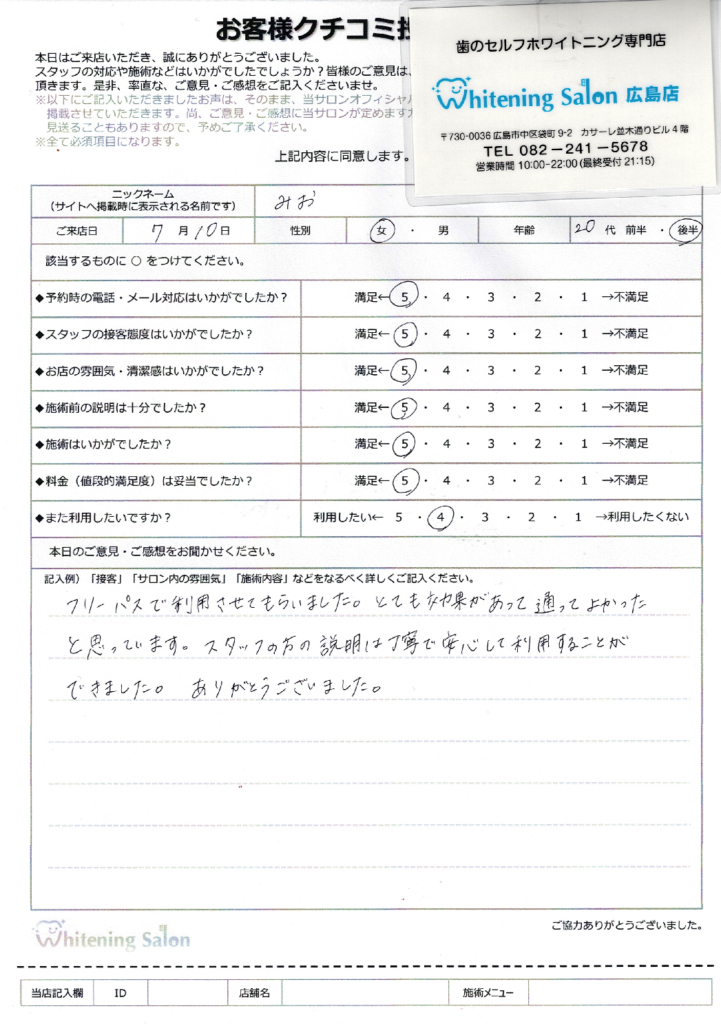 お客様クチコミ
歯のセルフホワイトニング専門店
Whitening Salon 広島店
〒730-0036 広島市中区袋町 9-2 カサーレ並木通りビル 4 階
TEL 082-241-5678
営業時間 10:00-22:00 (最終受付 21:15)
本日はご来店いただき、誠にありがとうございました。
スタッフの対応や施術などはいかがでしたでしょうか?皆様のご意見は、
頂きます。是非、率直な、ご意見・ご感想をご記入くださいませ。
※以下にご記入いただきましたお声は、そのまま、当サロンオフィシャル
掲載させていただきます。尚、ご意見・ご感想に当サロンが定めます
見送ることもありますので、予めご了承ください。
※全て必須項目になります。
上記内容に同意します。
ニックネーム
(サイトへ掲載時に表示される名前です) みお
ご来店日 7 月 10 日 性別 女 ・ 男 年齢 20 代 前半 ・ 後半
該当するものに ○ をつけてください。
◆予約時の電話・メール対応はいかがでしたか? 満足← 5 ・ 4 ・ 3 ・ 2 ・ 1 →不満足
◆スタッフの接客態度はいかがでしたか? 満足← 5 ・ 4 ・ 3 ・ 2 ・ 1 →不満足
◆お店の雰囲気・清潔感はいかがでしたか? 満足← 5 ・ 4 ・ 3 ・ 2 ・ 1 →不満足
◆施術前の説明は十分でしたか? 満足← 5 ・ 4 ・ 3 ・ 2 ・ 1 →不満足
◆施術はいかがでしたか? 満足← 5 ・ 4 ・ 3 ・ 2 ・ 1 →不満足
◆料金(値段的満足度)は妥当でしたか? 満足← 5 ・ 4 ・ 3 ・ 2 ・ 1 →不満足
◆また利用したいですか? 利用したい← 5 ・ 4 ・ 3 ・ 2 ・ 1 →利用したくない
本日のご意見・ご感想をお聞かせください。
記入例)「接客」「サロン内の雰囲気」「施術内容」などをなるべく詳しくご記入ください。
フリーパスで利用させてもらいました。とても効果があって通ってよかった
と思っています。スタッフの方の説明は丁寧で安心して利用することが
できました。 ありがとうございました。
ご協力ありがとうございました。
Whitening Salon
当店記入欄 ID 店舗名 施術メニュー